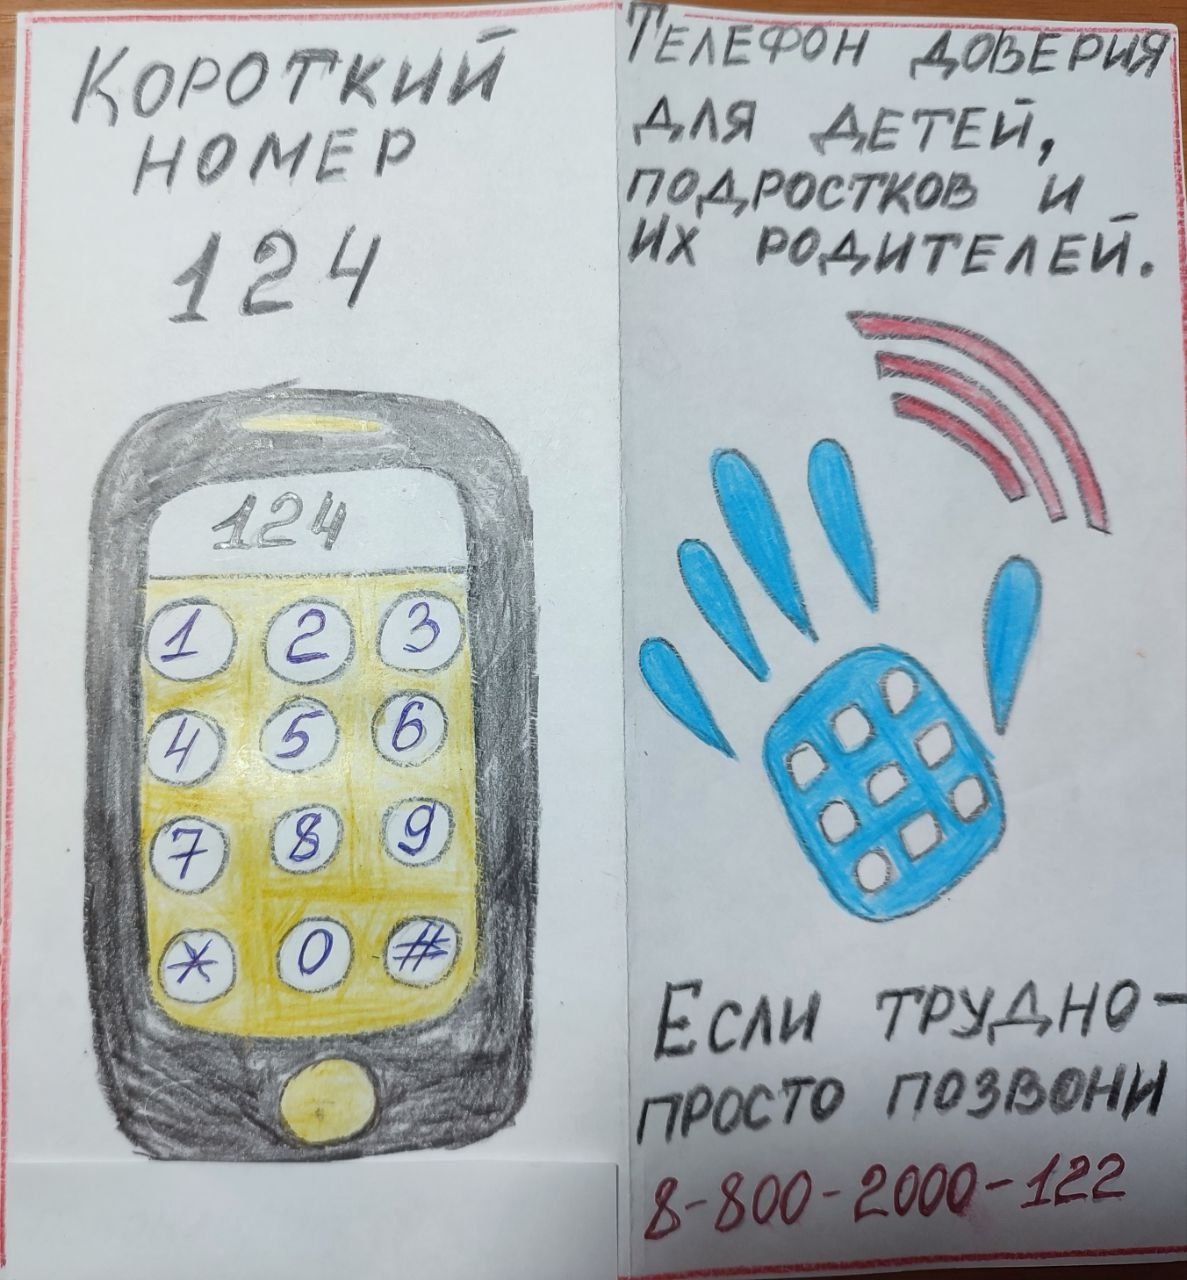 КОРОТКИЙ
НОМЕР
124
124
1 2 3
4 5 6
7 8 9
* 0 #
ТЕЛЕФОН ДОВЕРИЯ
ДЛЯ ДЕТЕЙ,
ПОДРОСТКОВ И
ИХ РОДИТЕЛЕЙ.
ЕСЛИ ТРУДНО-
ПРОСТО ПОЗВОНИ
8-800-2000-122